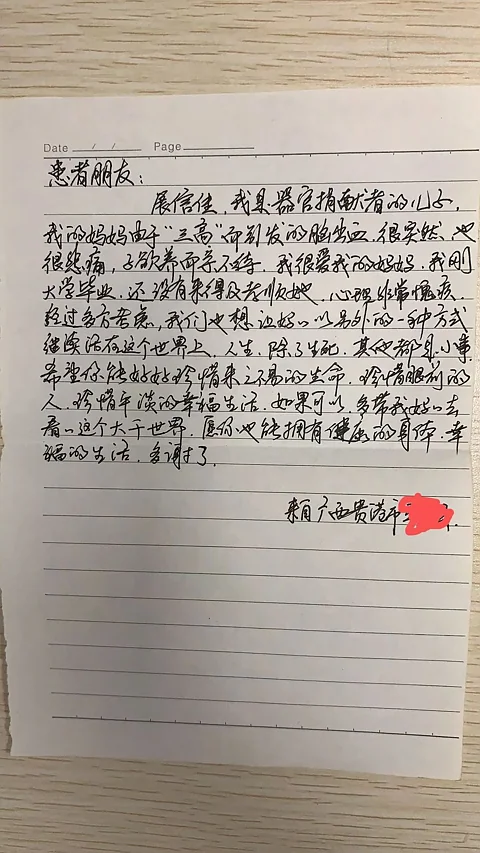 Date / / Page
患者朋友：
展信佳，我是器官捐献者的儿子，
我的妈妈由于“三高”而引发的脑出血，很突然，也
很悲痛，子欲养而亲不待，我很爱我的妈妈，我刚
大学毕业，还没有来得及孝顺她，心理非常愧疚，
经过多方考虑，我们也想让妈妈以另外的一种方式
继续活在这个世界上，人生，除了生死，其他都是小事
希望你能好好珍惜来之不易的生命，珍惜眼前的
人，珍惜平淡的幸福生活，如果可以，多带我妈妈去
看看这个大千世界，愿你也能拥有健康的身体，幸
福的生活，多谢了。
来自广西贵港市